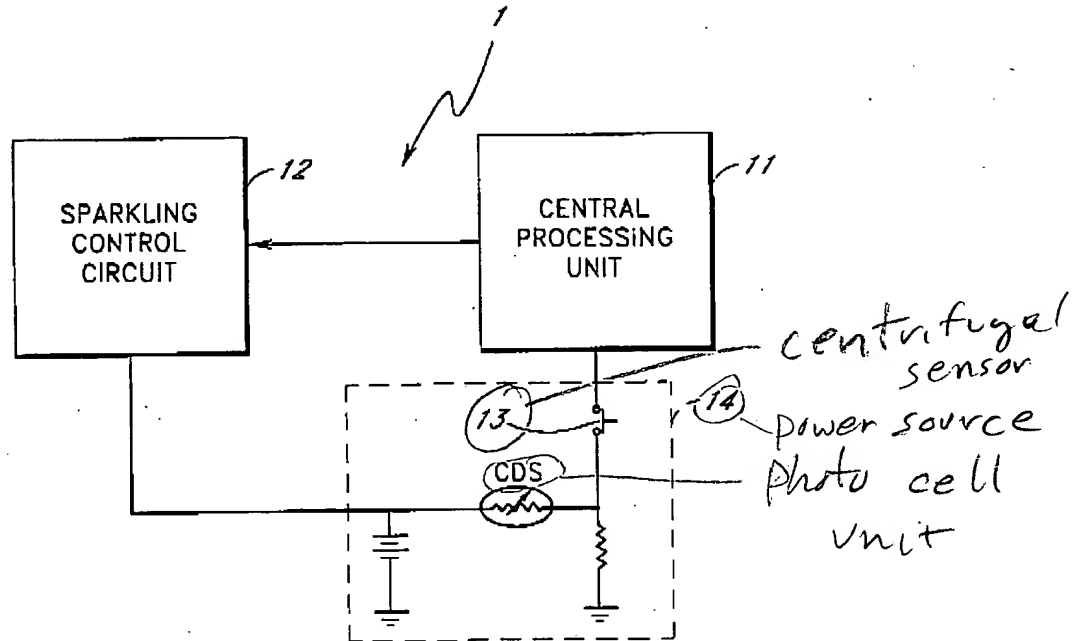 1
12
11
SPARKLING
CONTROL
CIRCUIT
CENTRAL
PROCESSING
UNIT
centrifugal
sensor
13
14
power source
CDS
photo cell
unit